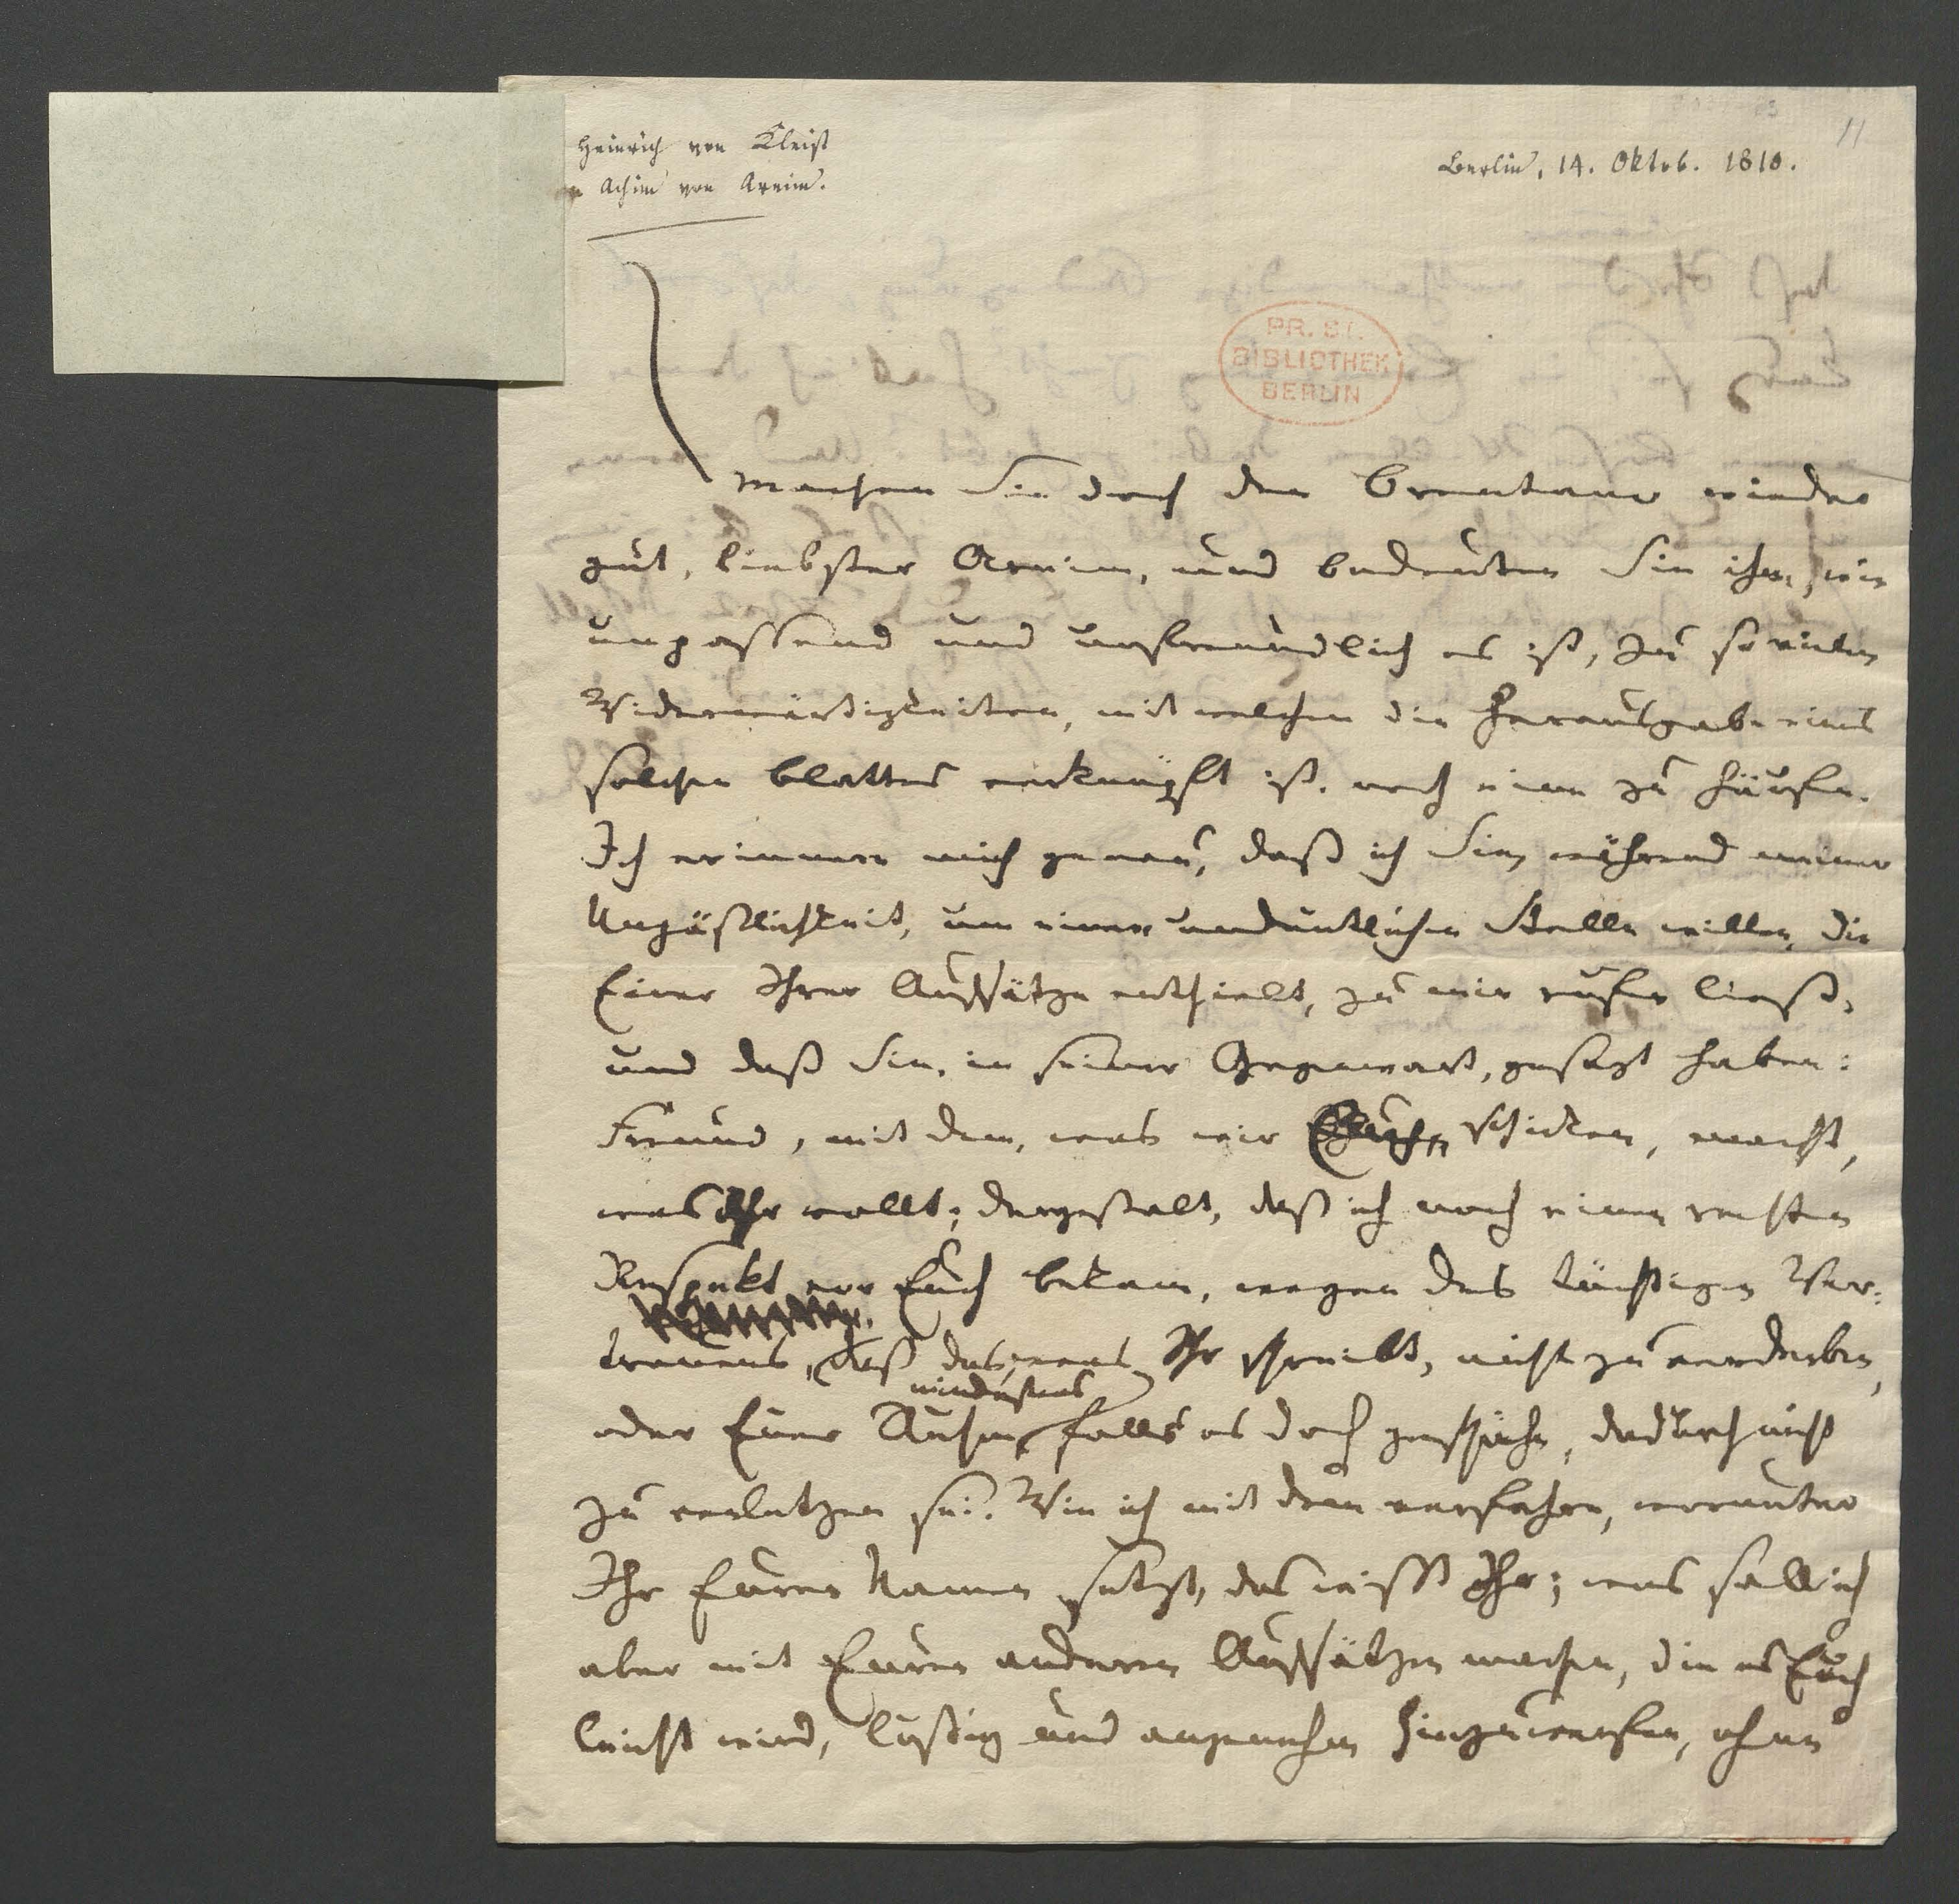 Heinrich von Kleist
Achim von Arnim.
Berlin, 14. Oktob. 1810.
11
PR. ST.
BIBLIOTHEK
BERLIN
Machen Sie doch den Brentano wieder
gut, liebster Arnim, und bedeuten Sie ihm, wie
unpassend und unfreundlich es ist, zu so vielen
Widerwärtigkeiten, mit welchen die Herausgabe eines
solchen Blattes verknüpft ist, noch eine zu häufen.
Ich erinnere mich genau, daß ich Sie, während meiner
Unpäßlichkeit, um einer undeutlichen Stelle willen, die
Einer Ihrer Aufsätze enthielt, zu mir rufen ließ,
und daß Sie, in seiner Gegenwart, gesagt haben:
Freund, mit dem, was wir Euch schicken, macht,
was Ihr wollt; dergestalt, daß ich noch einen rechten
Respekt vor Euch bekam, wegen des tüchtigen Ver-
trauens, daß das, was Ihr schreibt, nicht zu verderben,
mindestens
oder Euer Ruhm, falls es doch geschähe, dadurch nicht
zu verletzen sei. Wie ich mit dem verfahre, worunter
Ihr Euren Namen setzt, das wißt Ihr; was soll ich
aber mit Euren anderen Aufsätzen machen, die es Euch
leicht wird, lustig und angenehm hinzuwerfen, ohne